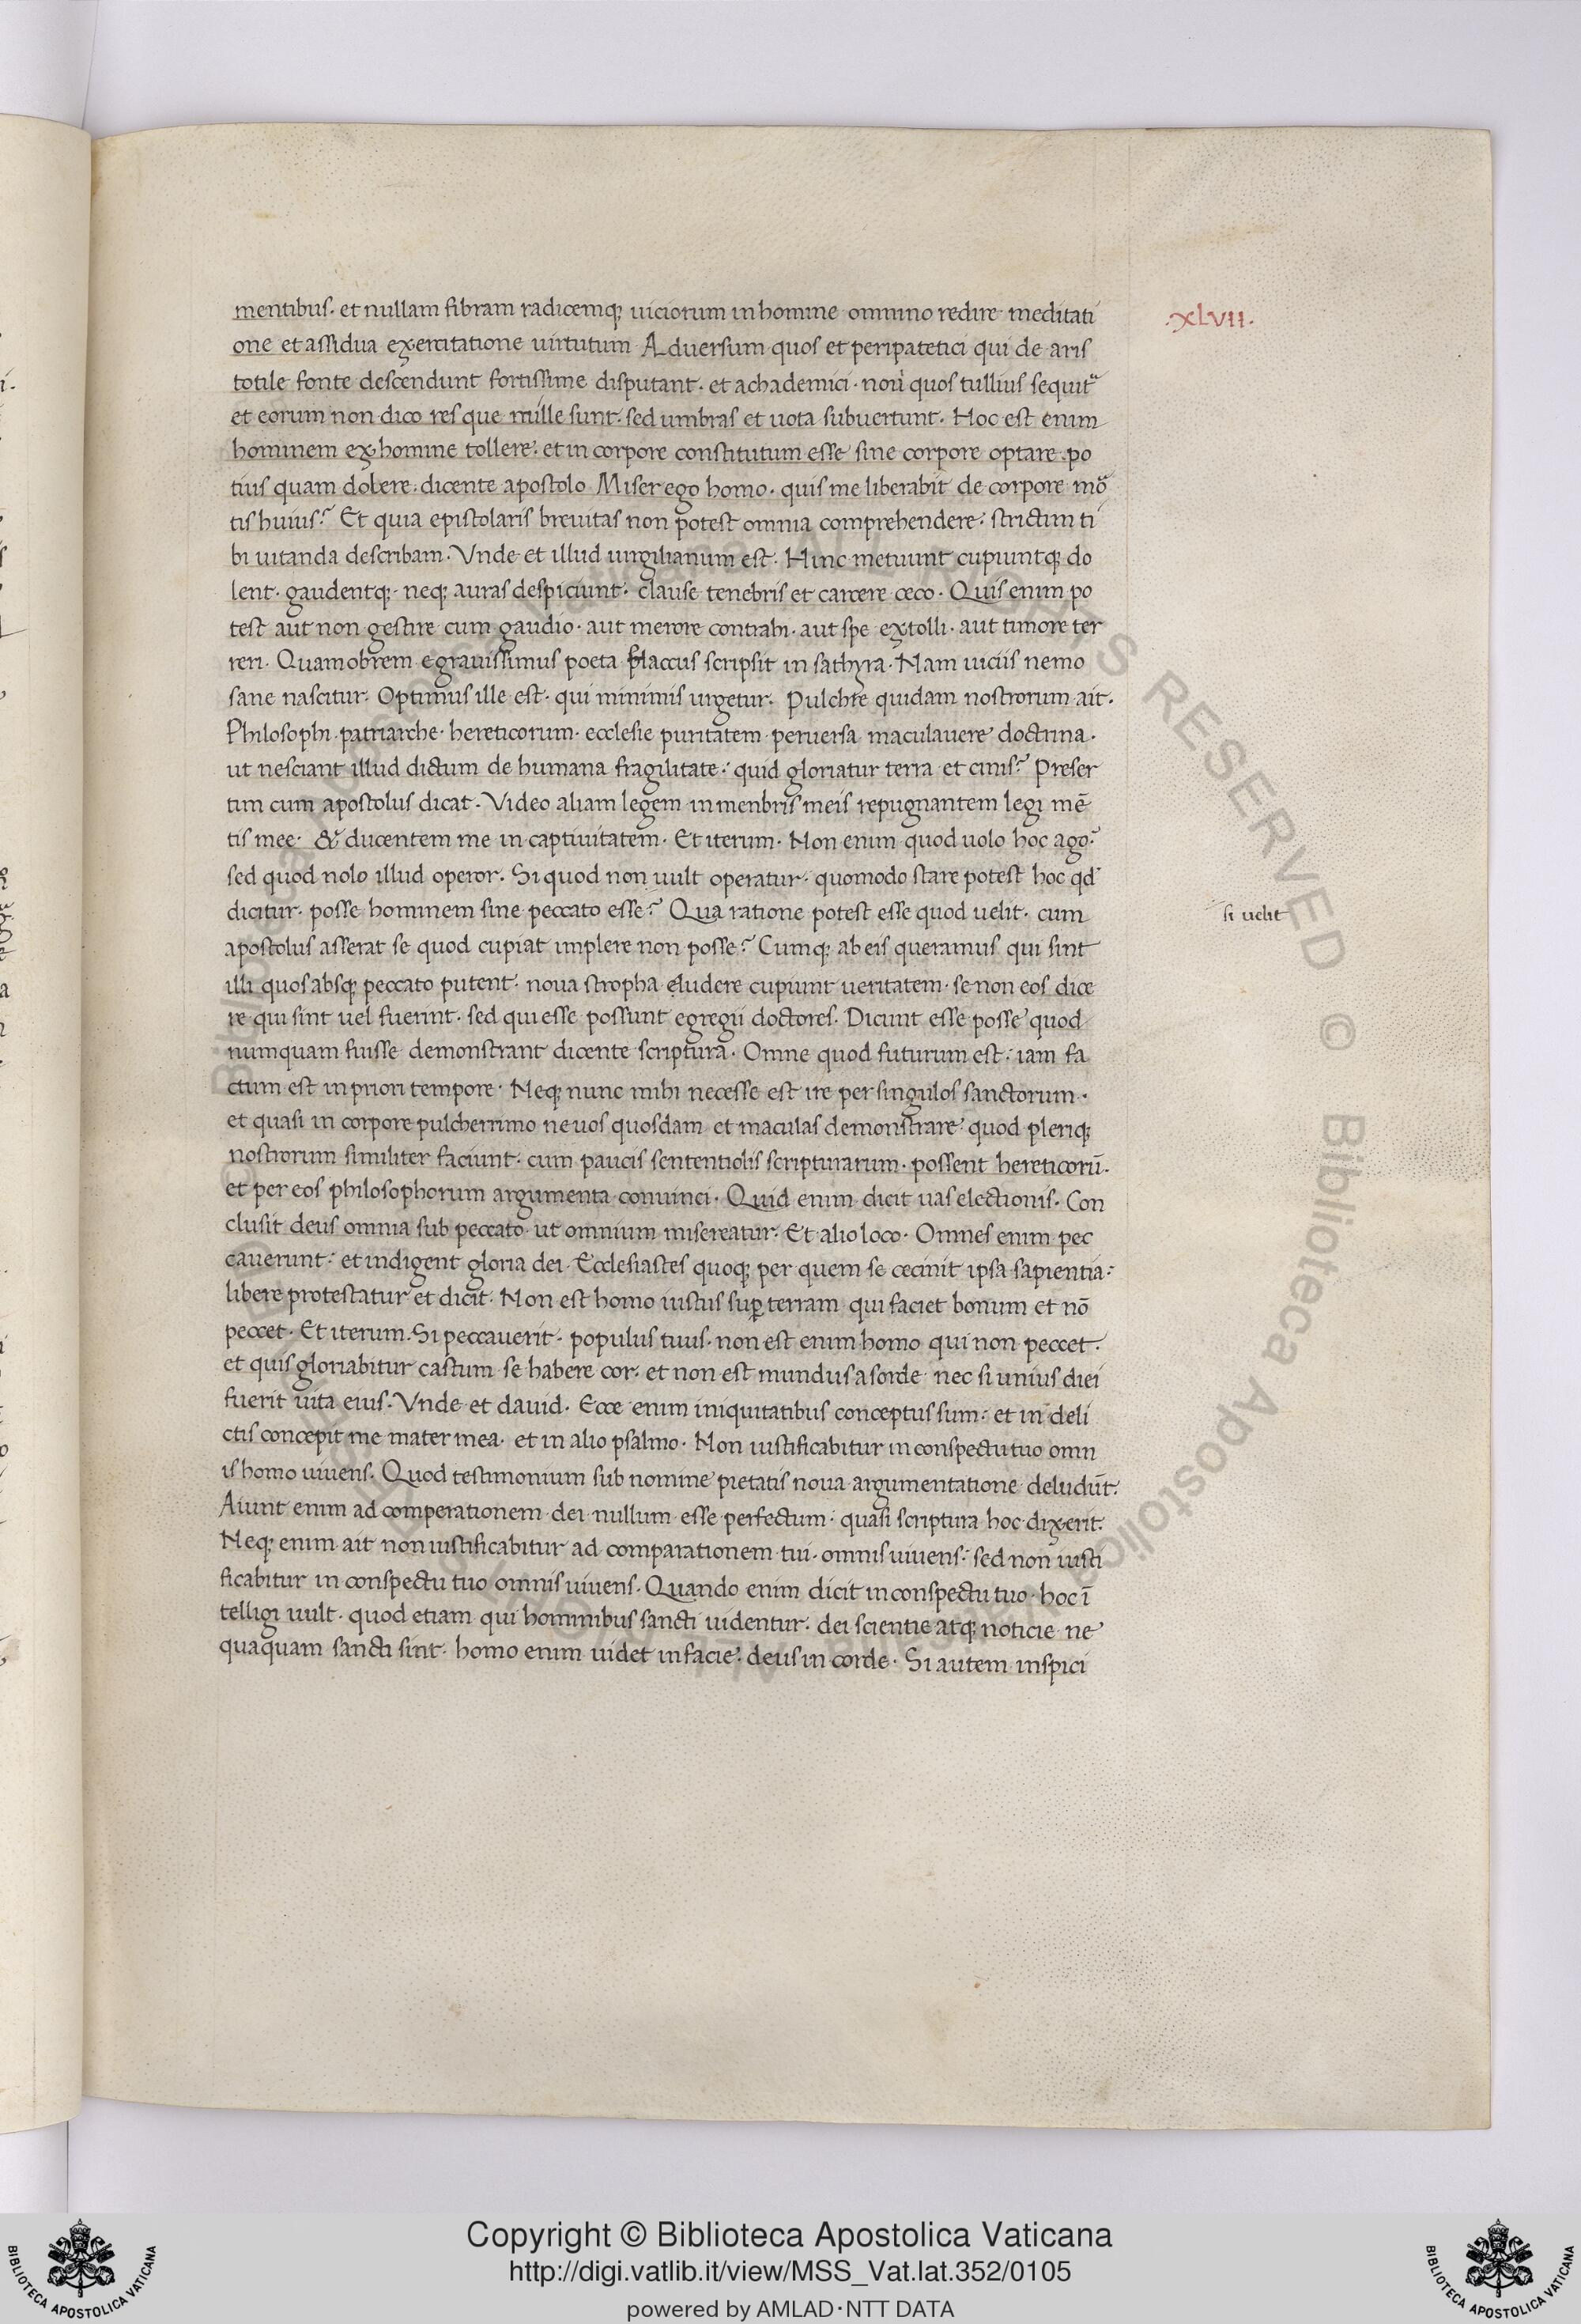 .XLVII.
mentibus. et nullam fibram radicemq; uiciorum in homine omnino redire meditati
one et assidua exercitatione uirtutum Aduersum quos et peripatetici qui de aris
totile fonte descendunt fortissime disputant. et achademici. noui quos tullius sequit
et eorum non dico res que nulle sunt. sed umbras et uota subuertunt. Hoc est enim
hominem ex homine tollere. et in corpore constitutum esse sine corpore optare. po
tius quam dolere. dicente apostolo Miser ego homo. quis me liberabit de corpore mo
tis huius? Et quia epistolaris breuitas non potest omnia comprehendere: strictim ti
bi uitanda describam. Vnde et illud uirgilianum est. Hinc metuunt cupiuntq; do
lent. gaudentq; neq; auras despiciunt. clause tenebris et carcere ceco. Quis enim po
test aut non gestire cum gaudio. aut merore contrahi. aut spe extolli. aut timore ter
reri. Quamobrem egrauissimus poeta flaccus scripsit in sathyra. Nam uiciis nemo
sane nascitur. Optimus ille est. qui minimis urgetur. Pulchre quidam nostrorum ait.
Philosophi patriarche hereticorum. ecclesie puritatem peruersa maculauere doctrina.
ut nesciant illud dictum de humana fragilitate: quid gloriatur terra et cinis? Preser
tim cum apostolus dicat. Video aliam legem in menbris meis repugnantem legi mē
tis mee. & ducentem me in captiuitatem. Et iterum. Non enim quod uolo hoc ago:
sed quod nolo illud operor. Si quod non uult operatur. quomodo stare potest hoc qd
dicitur. posse hominem sine peccato esse? Qua ratione potest esse quod uelit. cum
si uelit
apostolus asserat se quod cupiat implere non posse? Cumq; ab eis queramus qui sint
illi quos absq; peccato putent. noua stropha eludere cupiunt ueritatem. se non eos dice
re qui sint uel fuerint. sed qui esse possunt egregii doctores. Dicunt esse posse quod
numquam fuisse demonstrant dicente scriptura. Omne quod futurum est: iam fa
ctum est in priori tempore. Neq; nunc mihi necesse est ire per singulos sanctorum.
et quasi in corpore pulcherrimo neuos quosdam et maculas demonstrare quod pleriq;
nostrorum similiter faciunt. cum paucis sententiolis scripturarum. possent hereticorū.
et per eos philosophorum argumenta conuinci. Quid enim dicit uas electionis. Con
clusit deus omnia sub peccato ut omnium misereatur. Et alio loco. Omnes enim pec
cauerunt: et indigent gloria dei. Ecclesiastes quoq; per quem se cecinit ipsa sapientia:
libere protestatur et dicit. Non est homo iustus sup terram qui faciet bonum et nō
peccet. Et iterum. Si peccauerit. populus tuus. non est enim homo qui non peccet.
et quis gloriabitur castum se habere cor. et non est mundus a sorde nec si unius diei
fuerit uita eius. Vnde et dauid. Ecce enim iniquitatibus conceptus sum: et in deli
ctis concepit me mater mea. et in alio psalmo. Non iustificabitur in conspectu tuo omn
is homo uiuens. Quod testimonium sub nomine pietatis noua argumentatione deludūt.
Aiunt enim ad comperationem dei nullum esse perfectum. quasi scriptura hoc dixerit.
Neq; enim ait non iustificabitur ad comparationem tui. omnis uiuens: sed non iusti
ficabitur in conspectu tuo omnis uiuens. Quando enim dicit in conspectu tuo. hoc ī
telligi uult. quod etiam qui hominibus sancti uidentur. dei scientie atq; noticie ne
quaquam sancti sint. homo enim uidet in facie. deus in corde. Si autem inspici
Copyright © Biblioteca Apostolica Vaticana
http://digi.vatlib.it/view/MSS_Vat.lat.352/0105
powered by AMLAD·NTT DATA
BIBLIOTECA APOSTOLICA VATICANA
BIBLIOTECA APOSTOLICA VATICANA